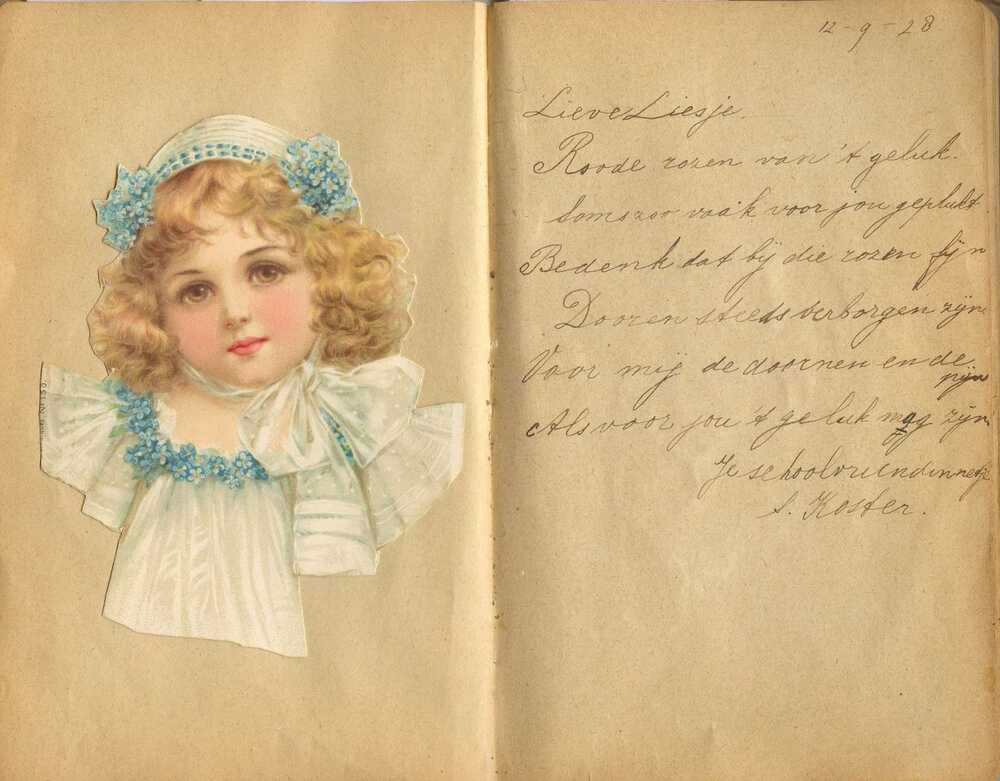 12-9-28
Lieve Liesje.
Roode rozen van 't geluk.
Soms zoo vaak voor jou geplukt
Bedenk dat bij die rozen fijn
Doozen steeds verborgen zijn
Voor mij de doornen en de
pijn
Als voor jou 't geluk mag zijn
Je schoolvriendinnetje
S. Koster.